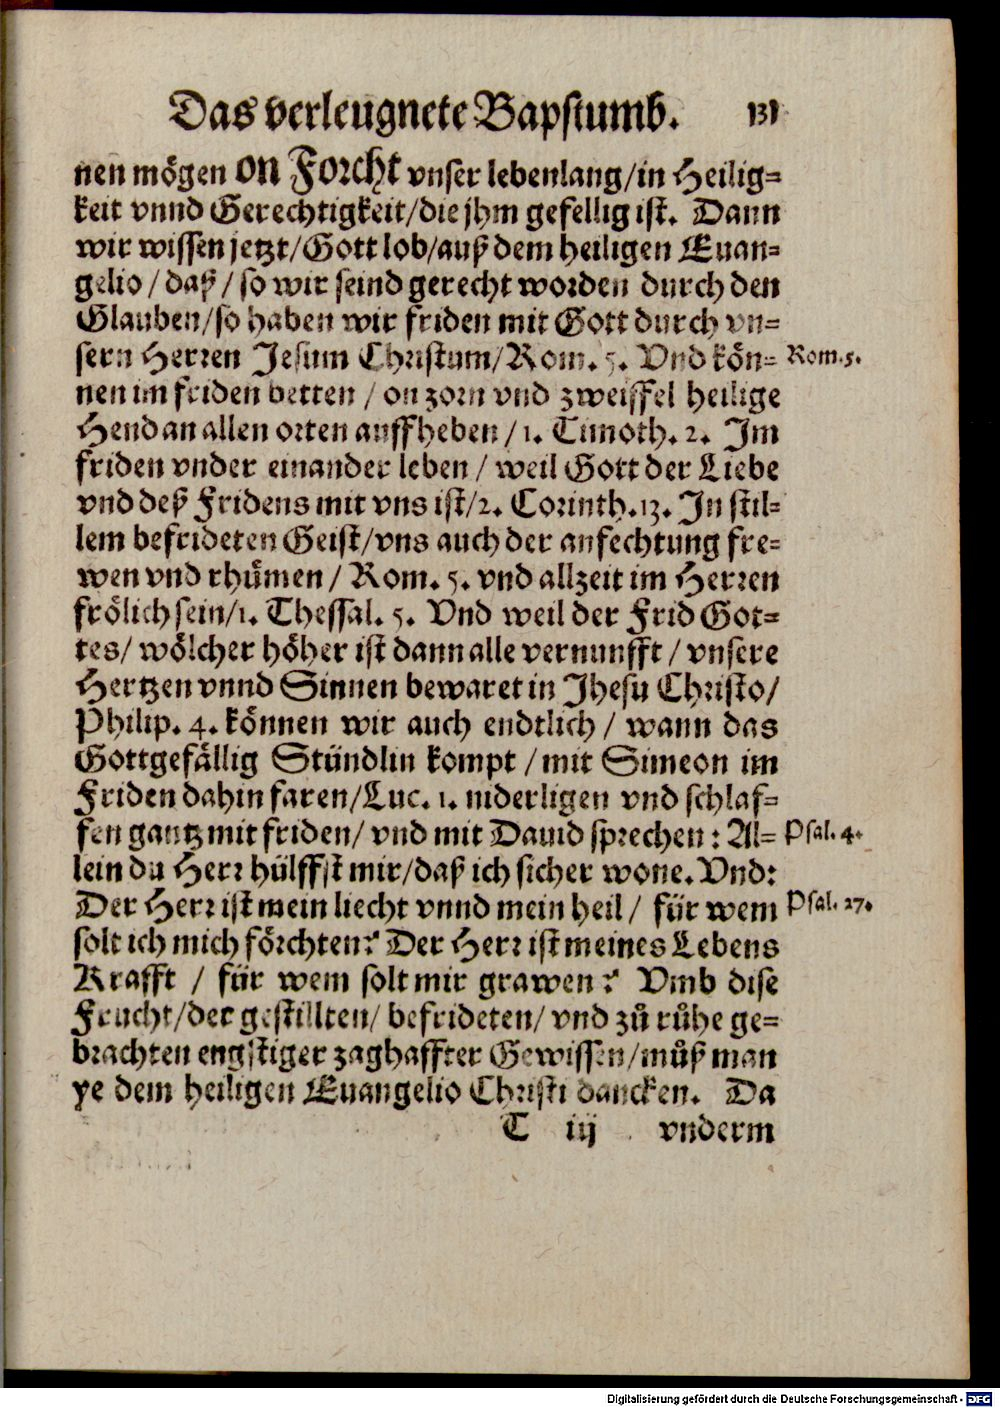 Das verleugnete Bapstumb. 131
nen mögen on Forcht vnser lebenlang/in Heilig=
keit vnnd Gerechtigkeit/die jhm gefellig ist. Dann
wir wissen jetzt/Gott lob/auß dem heiligen Euan=
gelio/daß/so wir seind gerecht worden durch den
Glauben/so haben wir friden mit Gott durch vn=
sern Herren Jesum Christum/Rom. 5. Vnd kön= Rom.5.
nen im friden betten/on zorn vnd zweiffel heilige
Hend an allen orten auffheben/1. Timoth. 2. Im
friden vnder einander leben/weil Gott der Liebe
vnd deß Fridens mit vns ist/2. Corinth.13. In stil=
lem befrideten Geist/vns auch der anfechtung fre=
wen vnd rhümen/Rom. 5. vnd allzeit im Herren
frölich sein/1. Thessal. 5. Vnd weil der Frid Got=
tes/wölcher höher ist dann alle vernunfft/vnsere
Hertzen vnnd Sinnen bewaret in Jhesu Christo/
Philip. 4. können wir auch endtlich/wann das
Gottgefällig Stündlin kompt/mit Simeon im
Friden dahin faren/Luc. 1. niderligen vnd schlaf=
fen gantz mit friden/vnd mit Dauid sprechen: Al= Psal. 4.
lein du Herr hülffst mir/daß ich sicher wone. Vnd:
Der Herr ist mein liecht vnnd mein heil/für wem Psal. 27.
solt ich mich förchten? Der Herr ist meines Lebens
Krafft/für wem solt mir grawen? Vmb dise
Frucht/der gestillten/befrideten/vnd zů růhe ge=
brachten engstiger zaghaffter Gewissen/můß man
ye dem heiligen Euangelio Christi dancken. Da
T iij vnderm
Digitalisierung gefördert durch die Deutsche Forschungsgemeinschaft - DFG